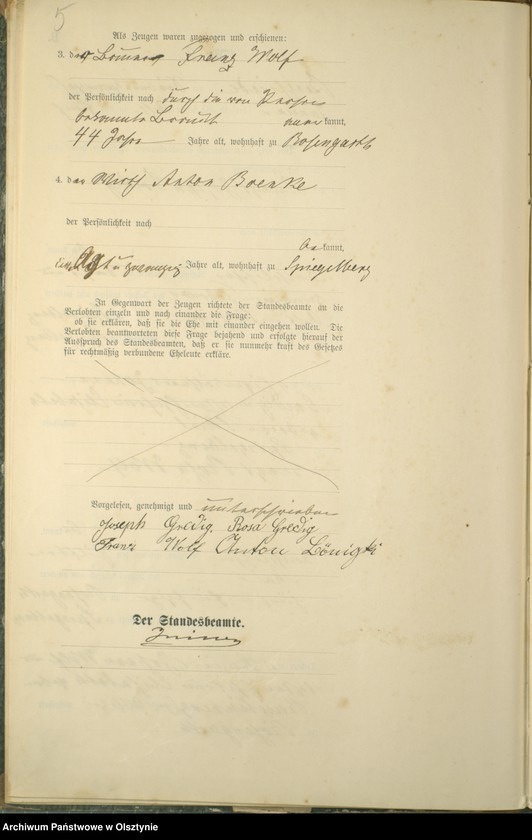 5
Als Zeugen waren zugezogen und erschienen:
3. der Franz Wolf
der Persönlichkeit nach durch die von Person
bekannte Braut anerkannt,
44 Jahre Jahre alt, wohnhaft zu Rosengarth
4. der Wirth Anton Boenke
der Persönlichkeit nach
be kannt,
u zwanzig Jahre alt, wohnhaft zu Spiegelberg
In Gegenwart der Zeugen richtete der Standesbeamte an die
Verlobten einzeln und nach einander die Frage:
ob sie erklären, daß sie die Ehe mit einander eingehen wollen. Die
Verlobten beantworteten diese Frage bejahend und erfolgte hierauf der
Ausspruch des Standesbeamten, daß er sie nunmehr kraft des Gesetzes
für rechtmäßig verbundene Eheleute erkläre.
Vorgelesen, genehmigt und unterschrieben
Joseph Gredig, Rosa Gredig
Franz Wolf Anton
Der Standesbeamte.
Archiwum Państwowe w Olsztynie